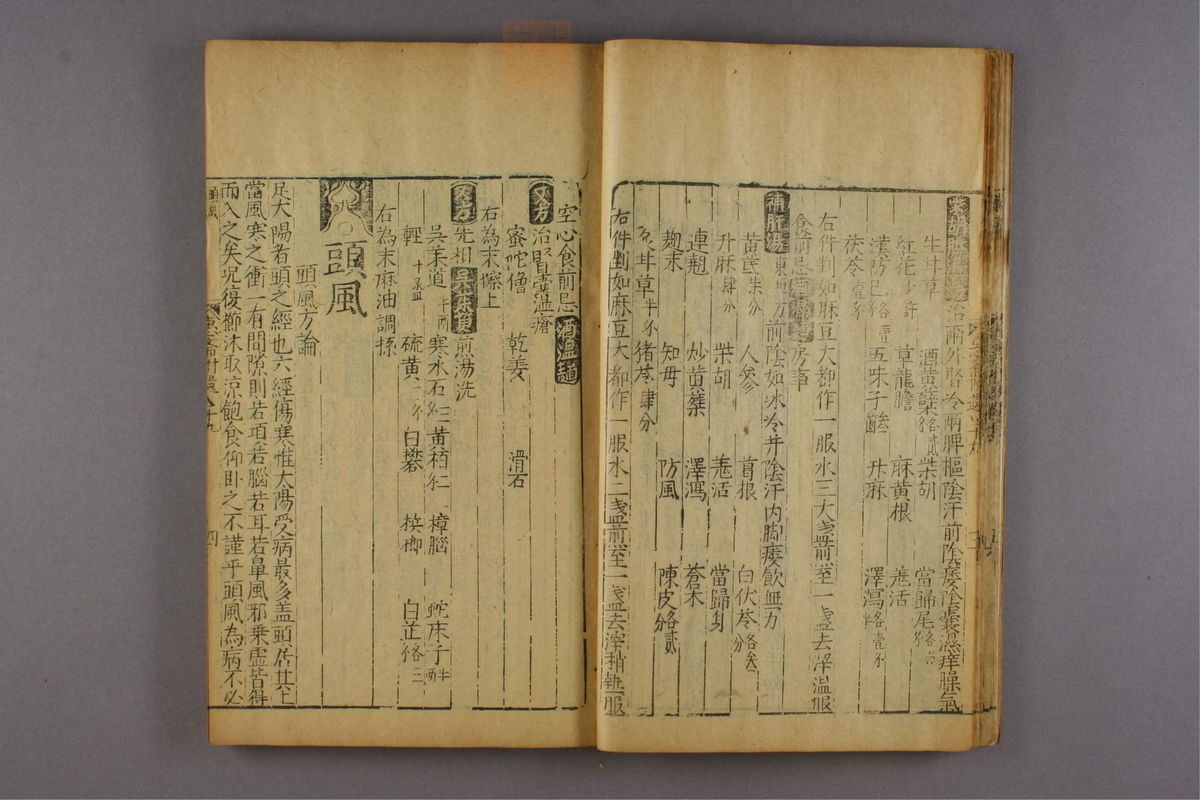 治兩外腎冷兩脾樞陰汗前陰痿陰囊濕痒臊氣
生甘草 酒黃蘗 柴胡 當歸尾
紅花少許 草龍膽 麻黃根 羌活
漢防己各壹 五味子 升麻 澤瀉各壹
茯苓壹
右件剉如麻豆大都作一服水三大盞煎至一盞去滓溫服
食前忌 房事
補肝湯 東垣方 前陰如氷冷并陰汗內脚痿軟無力
黃芪柒分 人參 葛根 白伏苓各叁分
升麻肆分 柴胡 羌活 當歸身
連翹 炒黃蘗 澤瀉 蒼朮
麯末 知母 防風 陳皮各貳分
炙甘草 猪苓肆分
右件剉如麻豆大都作一服水二盞煎至一盞去滓稍熱服
空心食前忌酒溫麺
又方 治腎囊濕瘡
蜜陀僧 乾姜 滑石
右為末擦上
又方 先相 煎湯洗
吳茱萸 寒水石 黃栢 樟腦 蛇床子
輕 十盞 硫黃 白礬 梹榔 白芷
右為末麻油調搽
頭風
頭風方論
足太陽者頭之經也六經傷寒惟太陽受病最多盖頭居其上
當風寒之衝一有間隙則若項若腦若耳若鼻風邪乗虛皆得
而入之矣况復櫛沐取涼飽食仰卧之不謹乎頭風為病不必
頭風
四